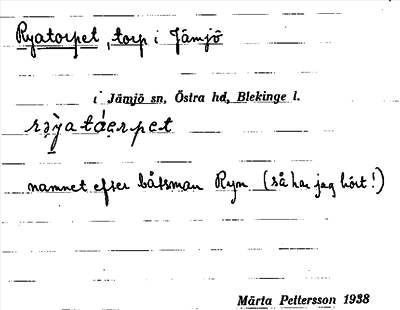 Ryatorpet, torp i Jämjö
i Jämjö sn, Östra hd, Blekinge l.
namnet efter båtsman Rym (så har jag hört!)
Märta Pettersson 1938